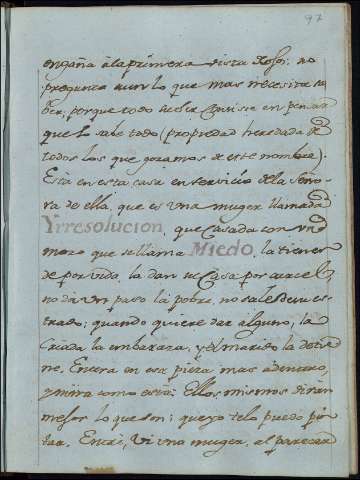 97
engaña á la primera vista Xefe; no
pregunta aun lo que mas necesita sa
ber, porque todo su ser Consiste en pensar
que lo sabe todo (propiedad heredada de
todos los que gozamos de este nombre).
Está en esta casa en servicio de la Seño-
ra de ella, que es una muger llamada
Yrresolucion, que Casada con un
mozo que se llama Miedo, la tiene
de por vida, la dan su Casa por carcel,
no dá un paso la pobre, no sale de su es-
trado; quando quiere dar alguno, la
Criada la embaraza, y el marido la detie
ne. Entra en esa pieza mas adentro,
y mira como estan: Ellos mismos dirán
mejor lo que son; que yo te lo puedo pin
tar. Entré, Vi una muger, al parecer